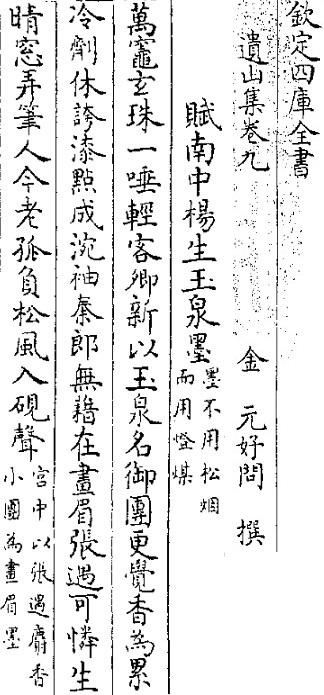 欽定四庫全書
遺山集卷九
金 元好問 撰
賦南中楊生玉泉墨墨不用松烟而用燈煤
萬竈玄珠一唾輕客卿新以玉泉名御團更覺香為累
冷劑休誇漆點成涴袖秦郎無藉在畫眉張遇可憐生
晴窓弄筆人今老孤負松風入硯聲宮中以張遇麝香小團為畫眉墨